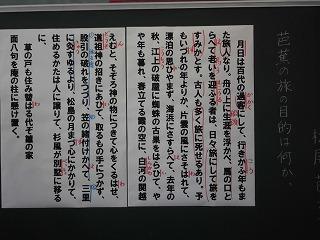 芭蕉の旅の目的は何か。
月日は百代の過客にして、行きかふ年もま
た旅人なり。舟の上に生涯を浮かべ、馬の口と
らへて老いを迎ふる者は、日々旅にして旅を
すみかとす。古人も多く旅に死せるあり。予
もいづれの年よりか、片雲の風にさそはれて、
漂泊の思ひやまず、海浜にさすらへ、去年の
秋、江上の破屋に蜘蛛の古巣をはらひて、や
や年も暮れ、春立てる霞の空に、白河の関越
えむと、そぞろ神の物につきて心をくるはせ、
道祖神の招きにあひて、取るもの手につかず、
股引の破れをつづり、笠の緒付けかへて、三里
に灸すゆるより、松島の月まづ心にかかりて、
住めるかたは人に譲りて、杉風が別墅に移る
に、
草の戸も住み替はる代ぞ雛の家
面八句を庵の柱に懸け置く。